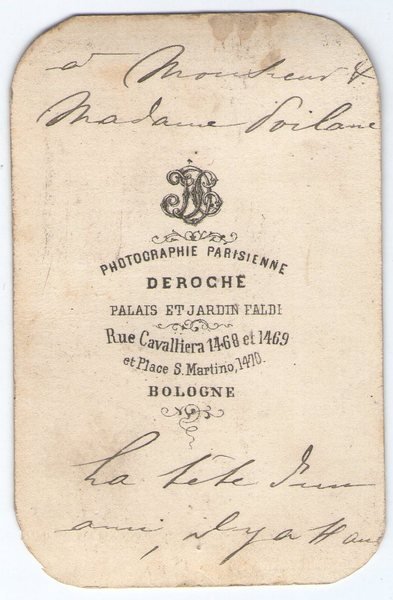 à Monsieur &
Madame Poilane
PHOTOGRAPHIE PARISIENNE
DEROCHE
PALAIS ET JARDIN FALDI
Rue Cavalliera 1468 et 1469
et Place S. Martino, 1470.
BOLOGNE
La tête d'un
ami, il y a 4 ans